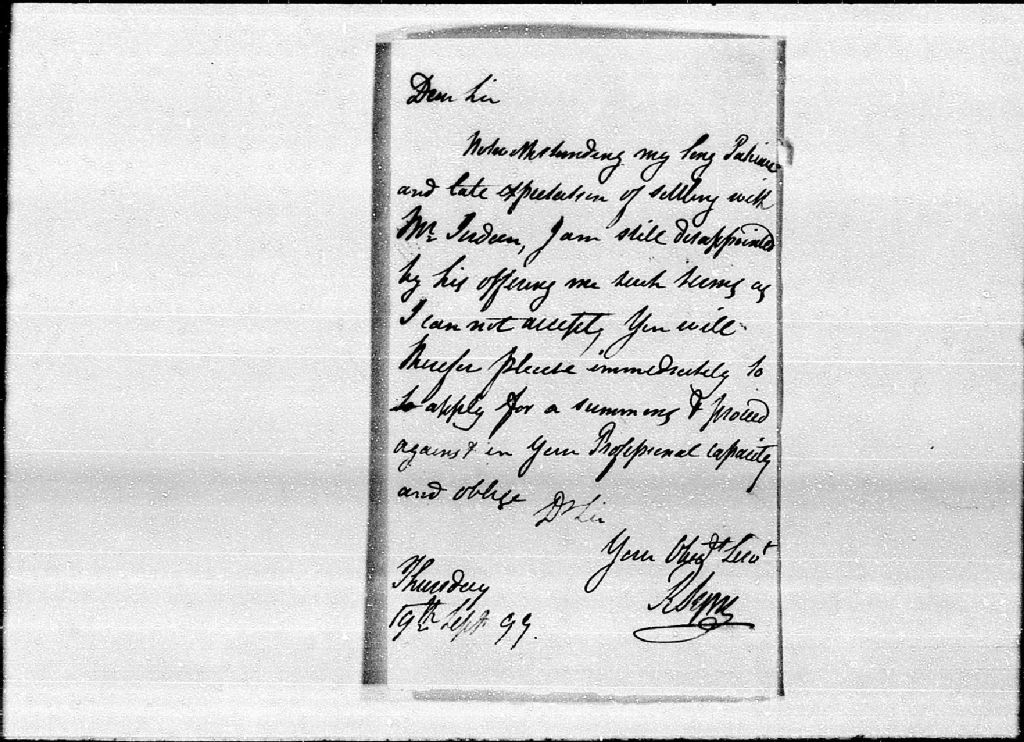 Dear Sir
Notwithstanding my long Patience
and late expectation of settling with
Mr. I am still disappointed
by his offering me such terms as
I can not accept, You will
therefor please immediately to
to apply for a summons & proceed
against in your Professional capacity
and oblige
Dr Sir
Your Obedt Servt
Thursday
19th Sept 99.